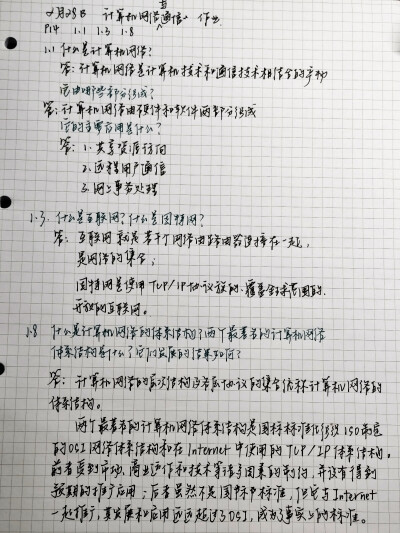 2月28日 计算机网络与通信 作业
P14 1.1 1.3 1.8
1.1 什么是计算机网络?
答:计算机网络是计算机技术和通信技术相结合的产物
它由哪些部分组成?
答:计算机网络由硬件和软件两部分组成
它的主要应用是什么?
答:1.共享资源访问
2.远程用户通信
3.网上事务处理
1.3. 什么是互联网?什么是因特网?
答:互联网就是若干个网络由路由器连接在一起,
是网络的集合;
因特网是使用TCP/IP协议族的,覆盖全球范围的,
开放的互联网。
1.8 什么是计算机网络的体系结构?两个最著名的计算机网络
体系结构是什么?它们发展的结果如何?
答:计算机网络的层次结构及各层协议的集合统称计算机网络的
体系结构。
两个最著名的计算机网络体系结构是国标标准化组织ISO制定
的OSI网络体系结构和在Internet中使用的TCP/IP体系结构。
前者受到市场、商业运作和技术等诸多因素的制约,并没有得到
预期的推广应用;后者虽然不是国际标准,但它与Internet
一起推广,其发展和应用远远超过了OSI,成为事实上的标准。